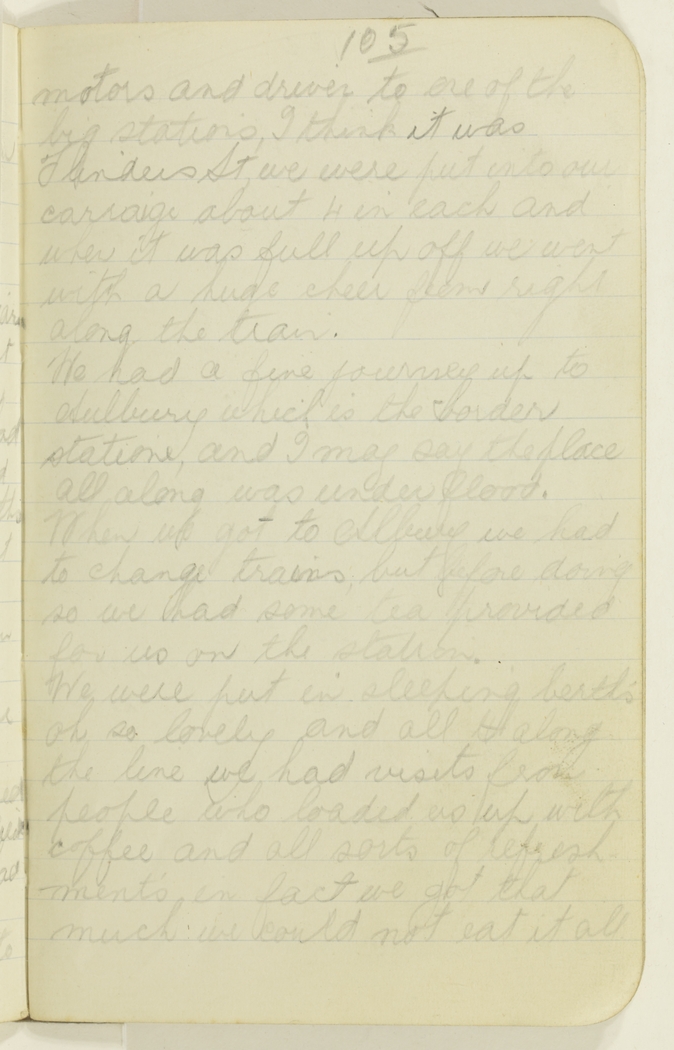 105
motors and driven to one of the
big stations, I think it was
Flinders St, we were put into our
carraige about 4 in each and
when it was full up off we went
with a huge cheer from right
along the train.
We had a fine journey up to
Aulbury which is the border
statione, and I may say the place
all along was under flood.
When we got to Albury we had
to change trains, but before doing
so we had some tea provided
for us on the station.
We were put in sleeping berths
oh so lovely and all along
the line we had visits from
people who loaded us up with
coffee and all sorts of refresh-
ments, in fact we got that
much we could not eat it all